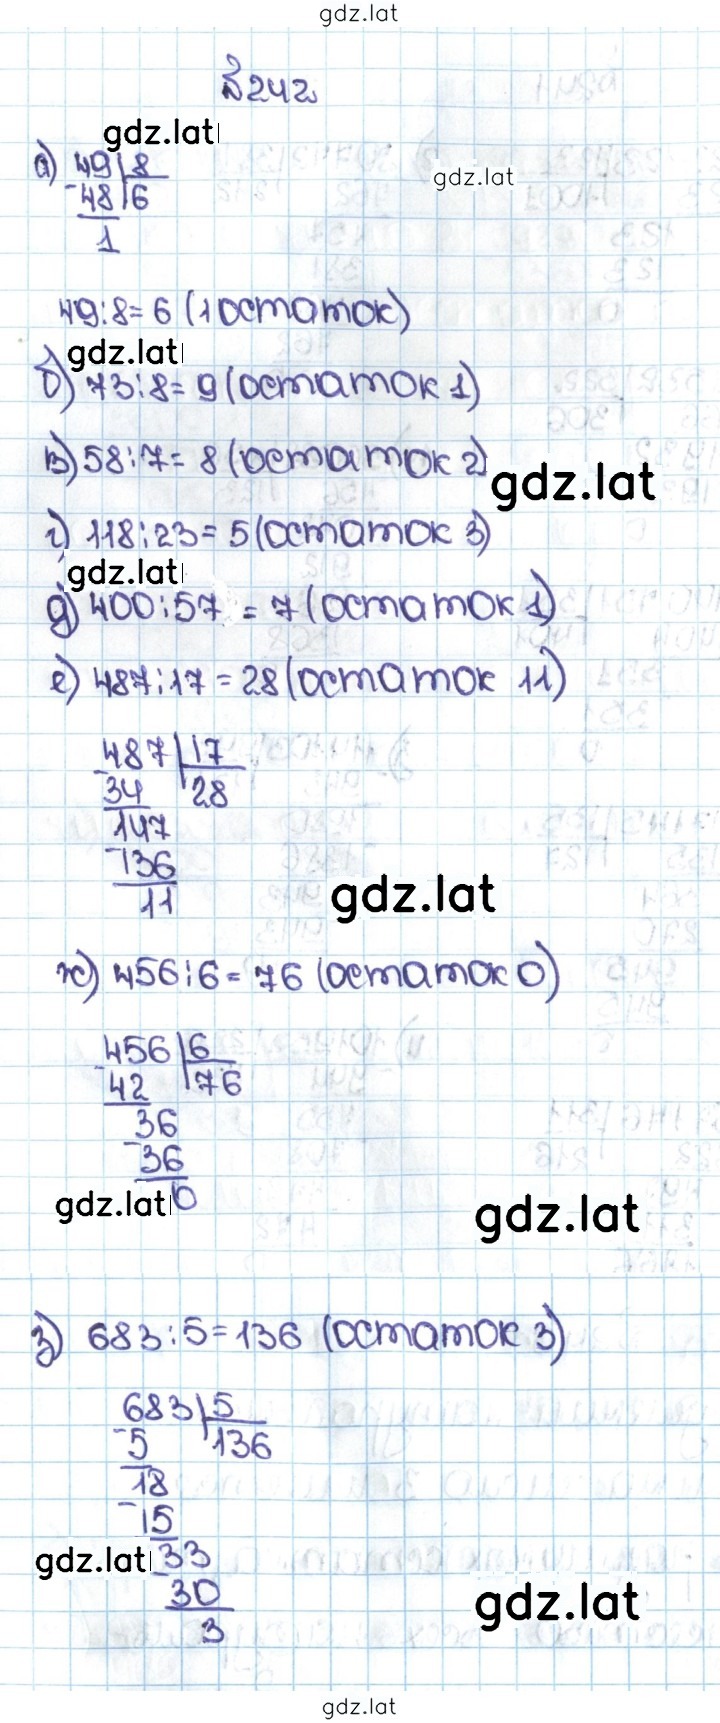 gdz.lat
№242
gdz.lat
а) 49 8
gdz.lat
-48 6
1
49:8=6 (1 остаток)
gdz.lat
б) 73:8=9 (остаток 1)
в) 58:7=8 (остаток 2)
gdz.lat
г) 118:23=5 (остаток 3)
gdz.lat
д) 400:57=7 (остаток 1)
е) 487:17=28 (остаток 11)
-487 17
34 28
-147
136
11
gdz.lat
ж) 456:6=76 (остаток 0)
-456 6
42 76
-36
36
0
gdz.lat
gdz.lat
з) 683:5=136 (остаток 3)
-683 5
5 136
-18
15
gdz.lat
-33
30
gdz.lat
3
gdz.lat